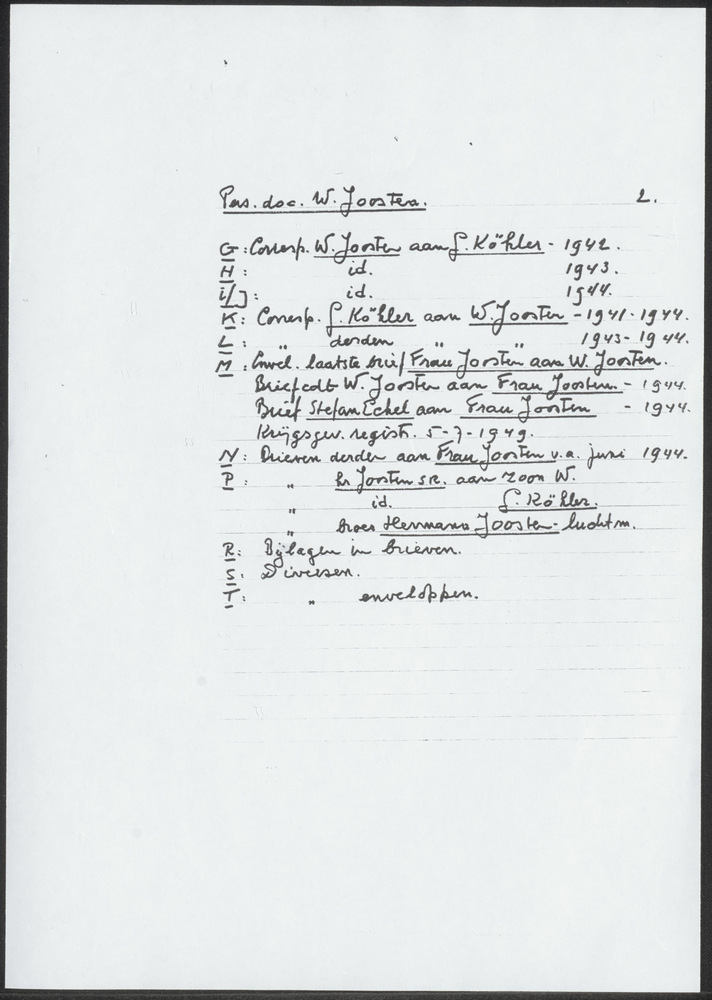 Pers. doc. W. Joosten. 2.
G: Corresp. W. Joosten aan L. Köhler - 1942.
H: id. 1943.
i/J: id. 1944.
K: Corresp. L. Köhler aan W. Joosten - 1941-1944.
L: " derden " " 1943-1944.
M: Envel. laatste brief Frau Joosten aan W. Joosten.
W. Joosten aan Frau Joosten - 1944.
Brief Stefan Eckel aan Frau Joosten - 1944.
Krijgsgev. registr. 5-7-1949.
N: Brieven derden aan Frau Joosten v.a. juni 1944.
P: " hr Joosten sr. aan zoon W.
" id. L. Köhler.
" broer Hermann Joosten - luchtm.
R: Bijlagen in brieven.
S: Diversen.
T: " enveloppen.